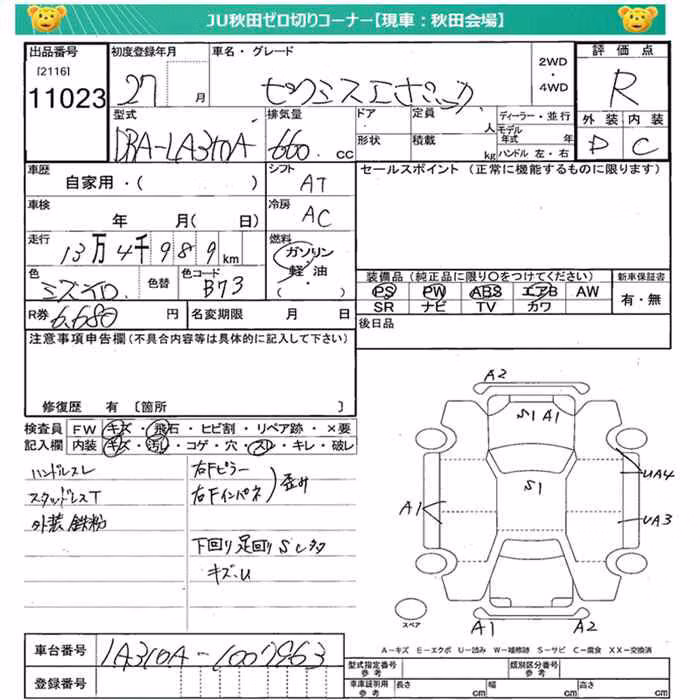 JU秋田ゼロ切りコーナー【現車：秋田会場】
出品番号 初度登録年月 車名・グレード 2WD・4WD 評価点
[2116]
11023 27 月 ピクシスエポック R
型式 排気量 ドア 定員 人 ディーラー・並行 外装 内装
DBA-LA310A 660 cc 形状 積載 kg モデル年式 年 ハンドル 左・右 D C
車歴 シフト セールスポイント (正常に機能するものに限ります)
自家用・( ) AT
車検 冷房
年 月( 日) AC
走行 燃料
13万4千989km ガソリン・軽油
色 色替 色コード 装備品 (純正品に限り○をつけてください) 新車保証書
ミズイロ B73 PS PW ABS エアB AW 有・無
SR ナビ TV カワ
R券 6,680 円 名変期限 月 日 後日品
注意事項申告欄(不具合内容等は具体的に記入して下さい)
修復歴 有 [箇所 ]
検査員 FW キズ・飛石・ヒビ割・リペア跡・×要
記入欄 内装 キズ・汚レ・コゲ・穴・スレ・キレ・破レ
ハンドルスレ
スタッドレスT
外装鉄粉
右Fピラー
右Fインパネ) 歪み
下回り足回りS
キズ・U
A2
S1 A1
S1
A1
UA4
UA3
A1 A2
スペア
A-キズ E-エクボ U-凹み W-補修跡 S-サビ C-腐食 XX-交換済
車台番号 LA310A-1007963
登録番号
型式指定番号 参考 類別区分番号 参考
車庫証明用 参考 長さ cm 幅 cm 高さ cm